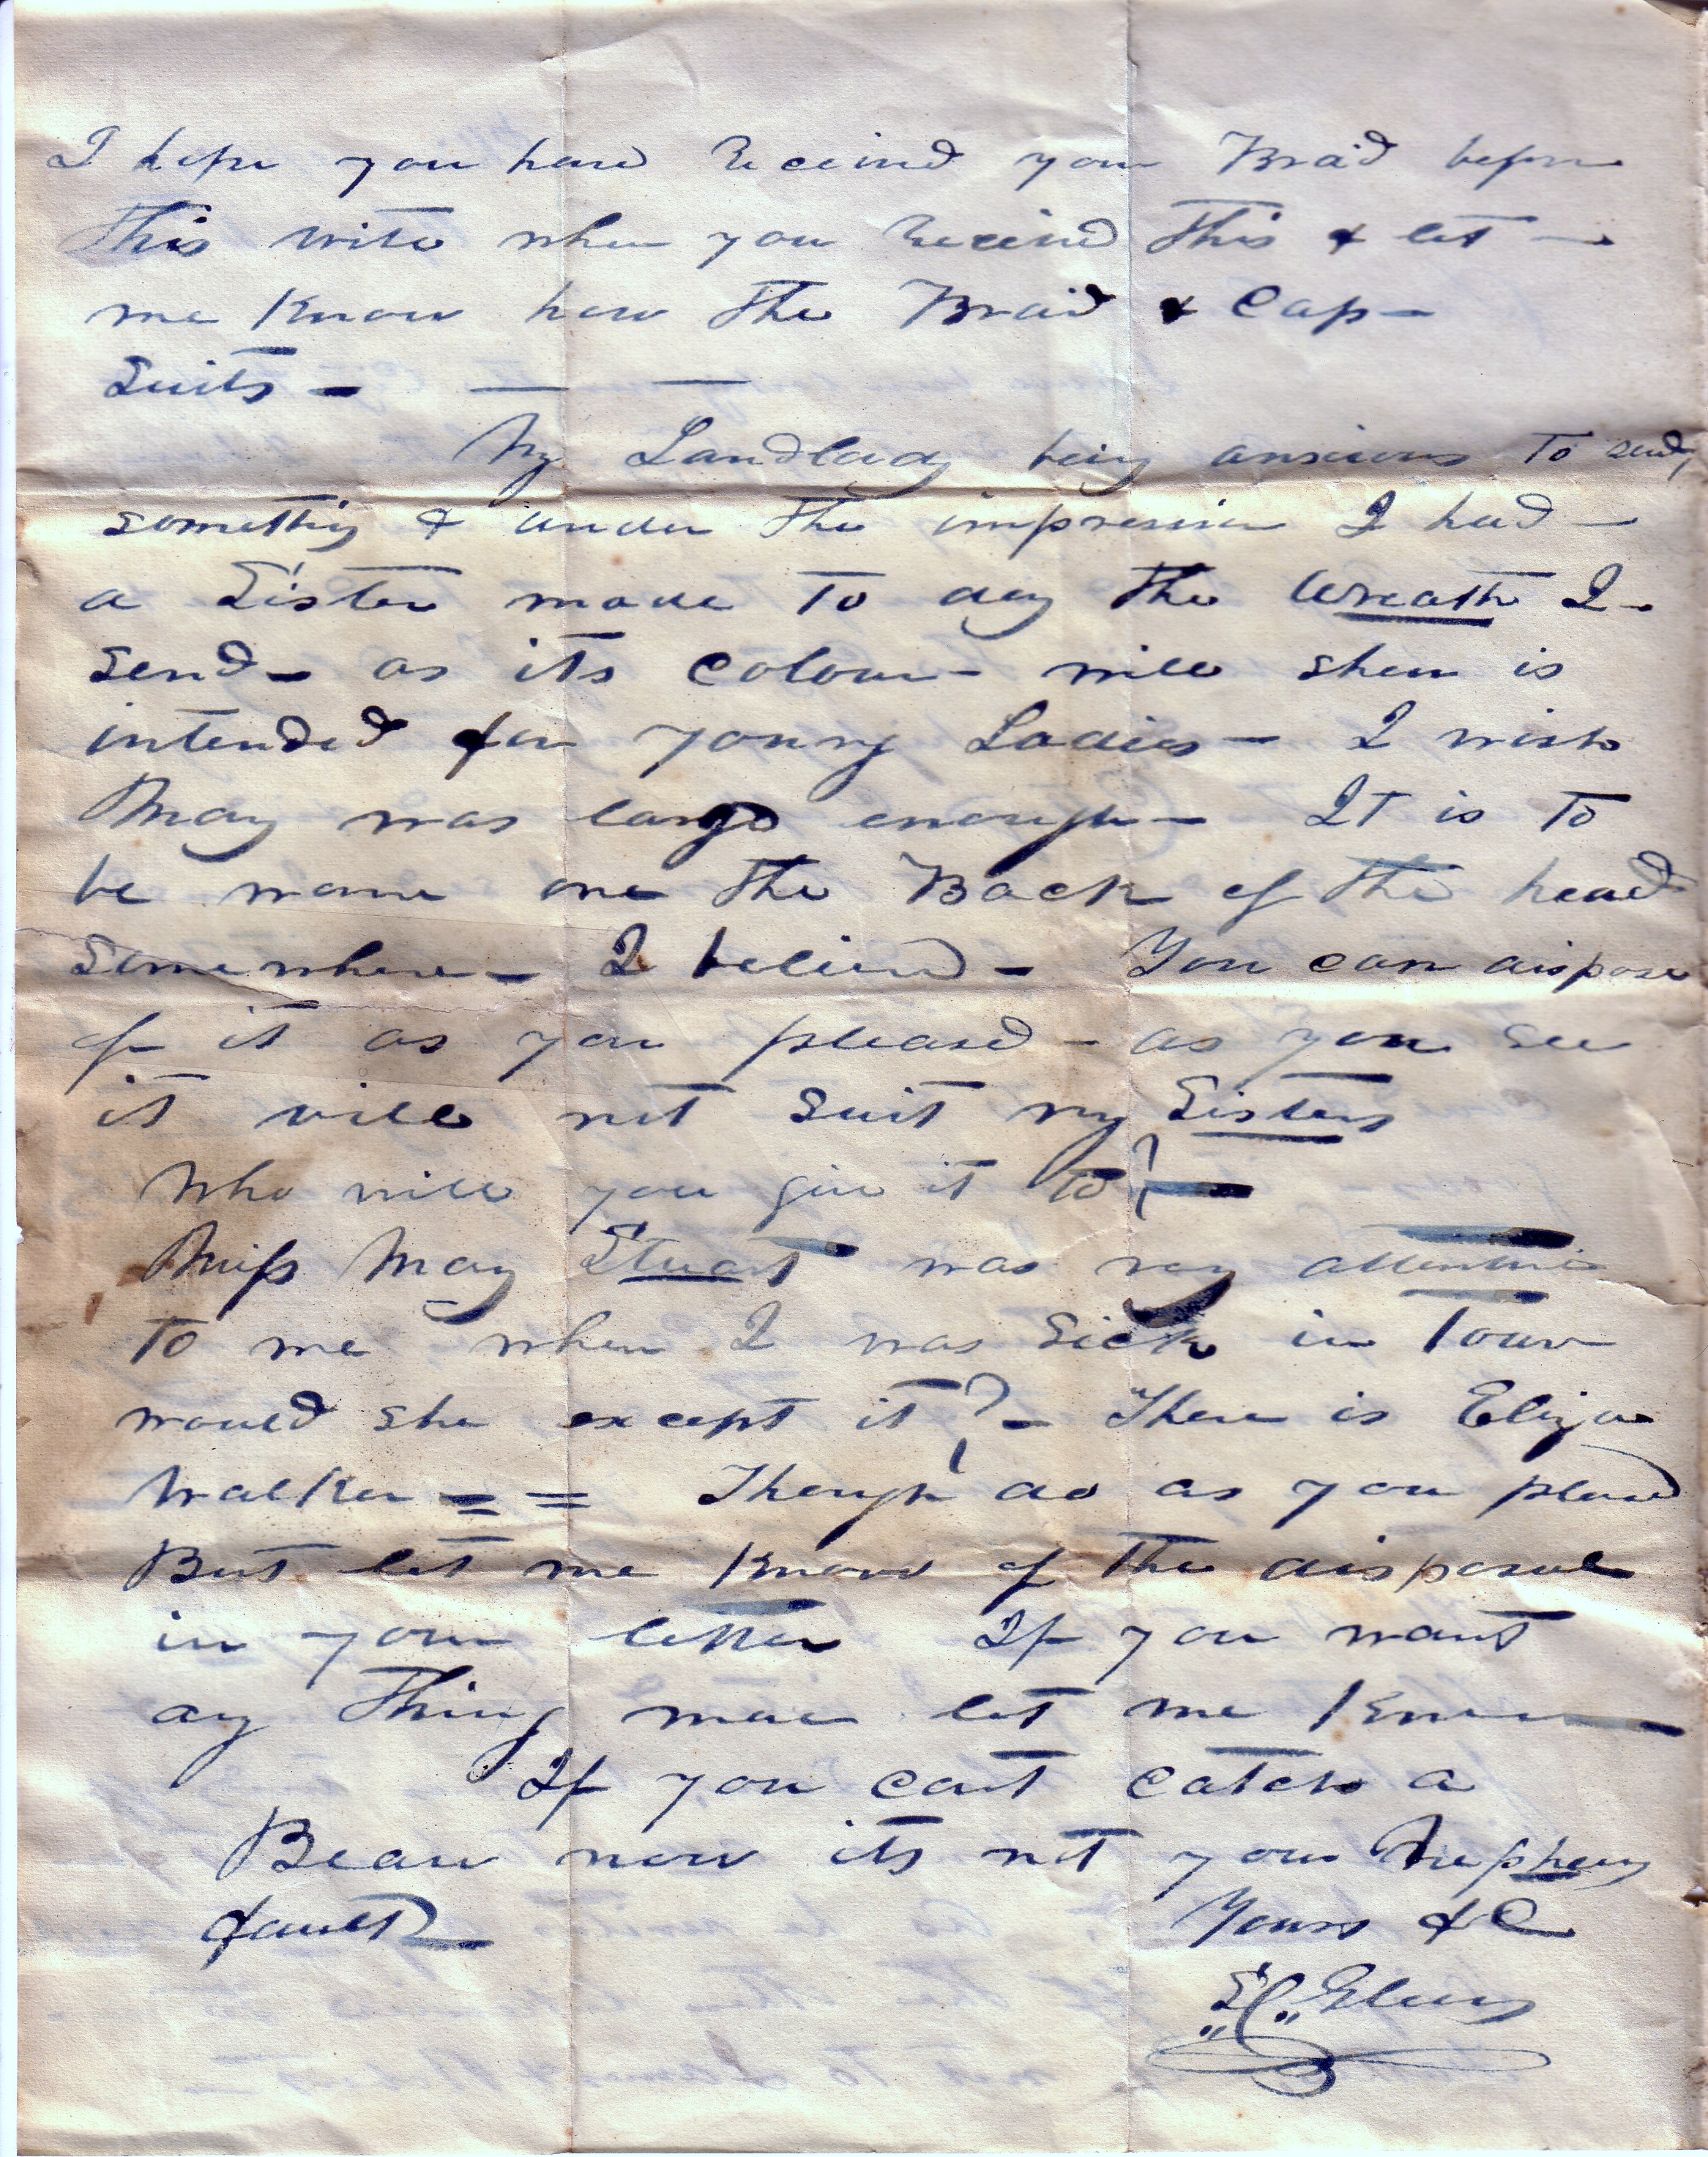 I hope you have received your Braid before
this write when you received this & let —
me Know how the Braid & Cap —
Suits — — —
My Landlady being anxious to send
something & under the impression I had —
a Sister made to day the Wreath I —
send — as its Colour — will shew is
intended for young Ladies — I wish
May was large enough — It is to
be worne one the Back of the head
Somewhere — I believe — You can dispose
of it as you please — as you see
it will not suit my Sisters
Who will you give it to? —
Miss May Stuart was very attentive
to me when I was Sick in Town
would she except it? — There is Eliza
Walker = = Though do as you please
But let me Know of the disposal
in your letter If you want
any thing more let me Know —
If you cant catch a
Beau now its not your Nephews
fault
Yours &C